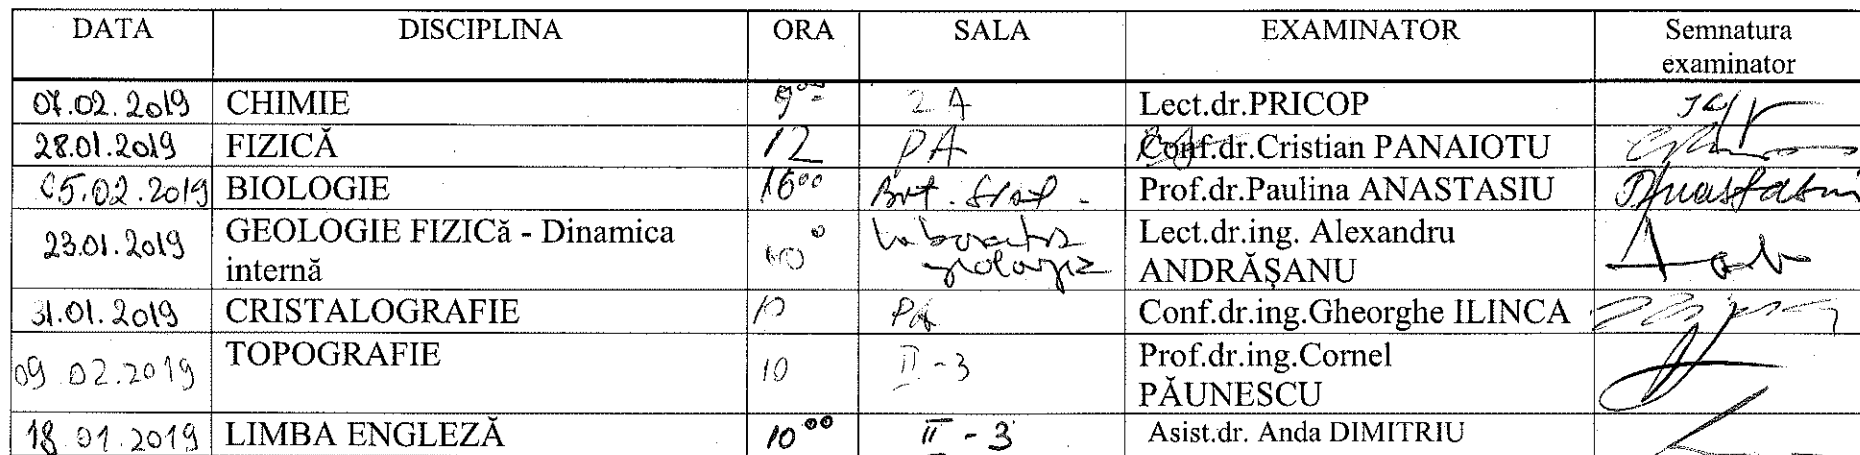 DATA DISCIPLINA ORA SALA EXAMINATOR Semnatura
examinator
07.02.2019 CHIMIE 9⁰⁰ 2A Lect.dr.PRICOP
28.01.2019 FIZICĂ 12 PA Conf.dr.Cristian PANAIOTU
05.02.2019 BIOLOGIE 16⁰⁰ Prof.dr.Paulina ANASTASIU
23.01.2019 GEOLOGIE FIZICă - Dinamica Lect.dr.ing. Alexandru
internă ANDRĂȘANU
31.01.2019 CRISTALOGRAFIE PA Conf.dr.ing.Gheorghe ILINCA
09.02.2019 TOPOGRAFIE 10 II-3 Prof.dr.ing.Cornel
PĂUNESCU
18.01.2019 LIMBA ENGLEZĂ 10⁰⁰ II-3 Asist.dr. Anda DIMITRIU